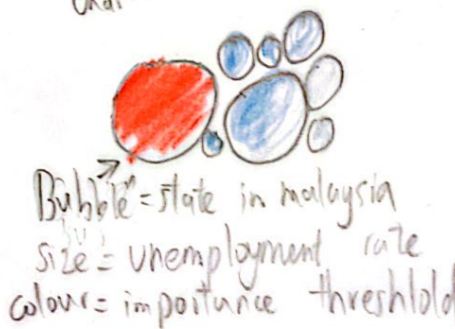 Bubble = state in malaysia
size = unemployment rate
colour = importance threshlold